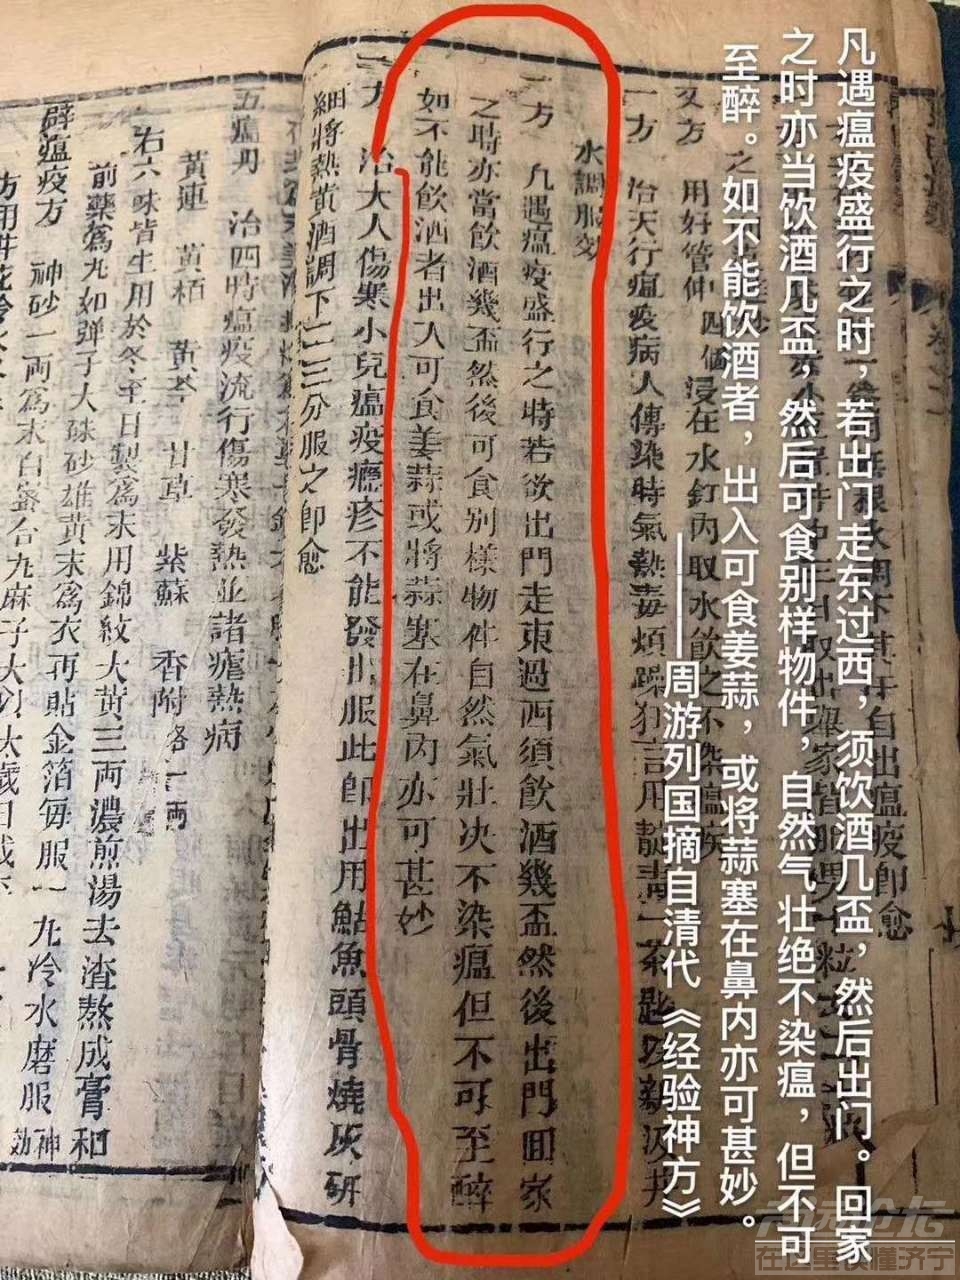 凡遇瘟疫盛行之时，若出门走东过西，须饮酒几盃，然后出门。回家
之时亦当饮酒几盃，然后可食别样物件，自然气壮绝不染瘟，但不可
至醉。如不能饮酒者，出入可食姜蒜，或将蒜塞在鼻内亦可甚妙。
——周游列国摘自清代《经验神方》
又方 用好管仲四個浸在水缸內取水飲之不染瘟疾
一方 治天行瘟疫病人傳染時氣熱毒煩躁狂言用靛青一茶匙以新汲井
水調服效
一方 凡遇瘟疫盛行之時若欲出門走東過西須飲酒幾盃然後出門囬家
之時亦當飲酒幾盃然後可食别樣物件自然氣壯决不染瘟但不可至醉
如不能飲酒者出入可食姜蒜或將蒜塞在鼻內亦可甚妙
一方 治大人傷寒小兒瘟疫癮疹不能發出服此即出用鮎魚頭骨燒灰研
細將熱黄酒調下二三分服之即愈
五瘟丹 治四時瘟疫流行傷寒發熱並諸瘧熱病
黃連 黃栢 黃芩 甘草 紫蘇 香附各一両
右六味皆生用於冬至日製爲末用錦紋大黃三両濃煎湯去渣熬成膏和
前藥爲九如弹子大硃砂雄黃末爲衣再貼金箔每服一九冷水磨服神效
辟瘟疫方 神砂一両爲末白蜜合九麻子大以太歲日或
在这里读懂济宁